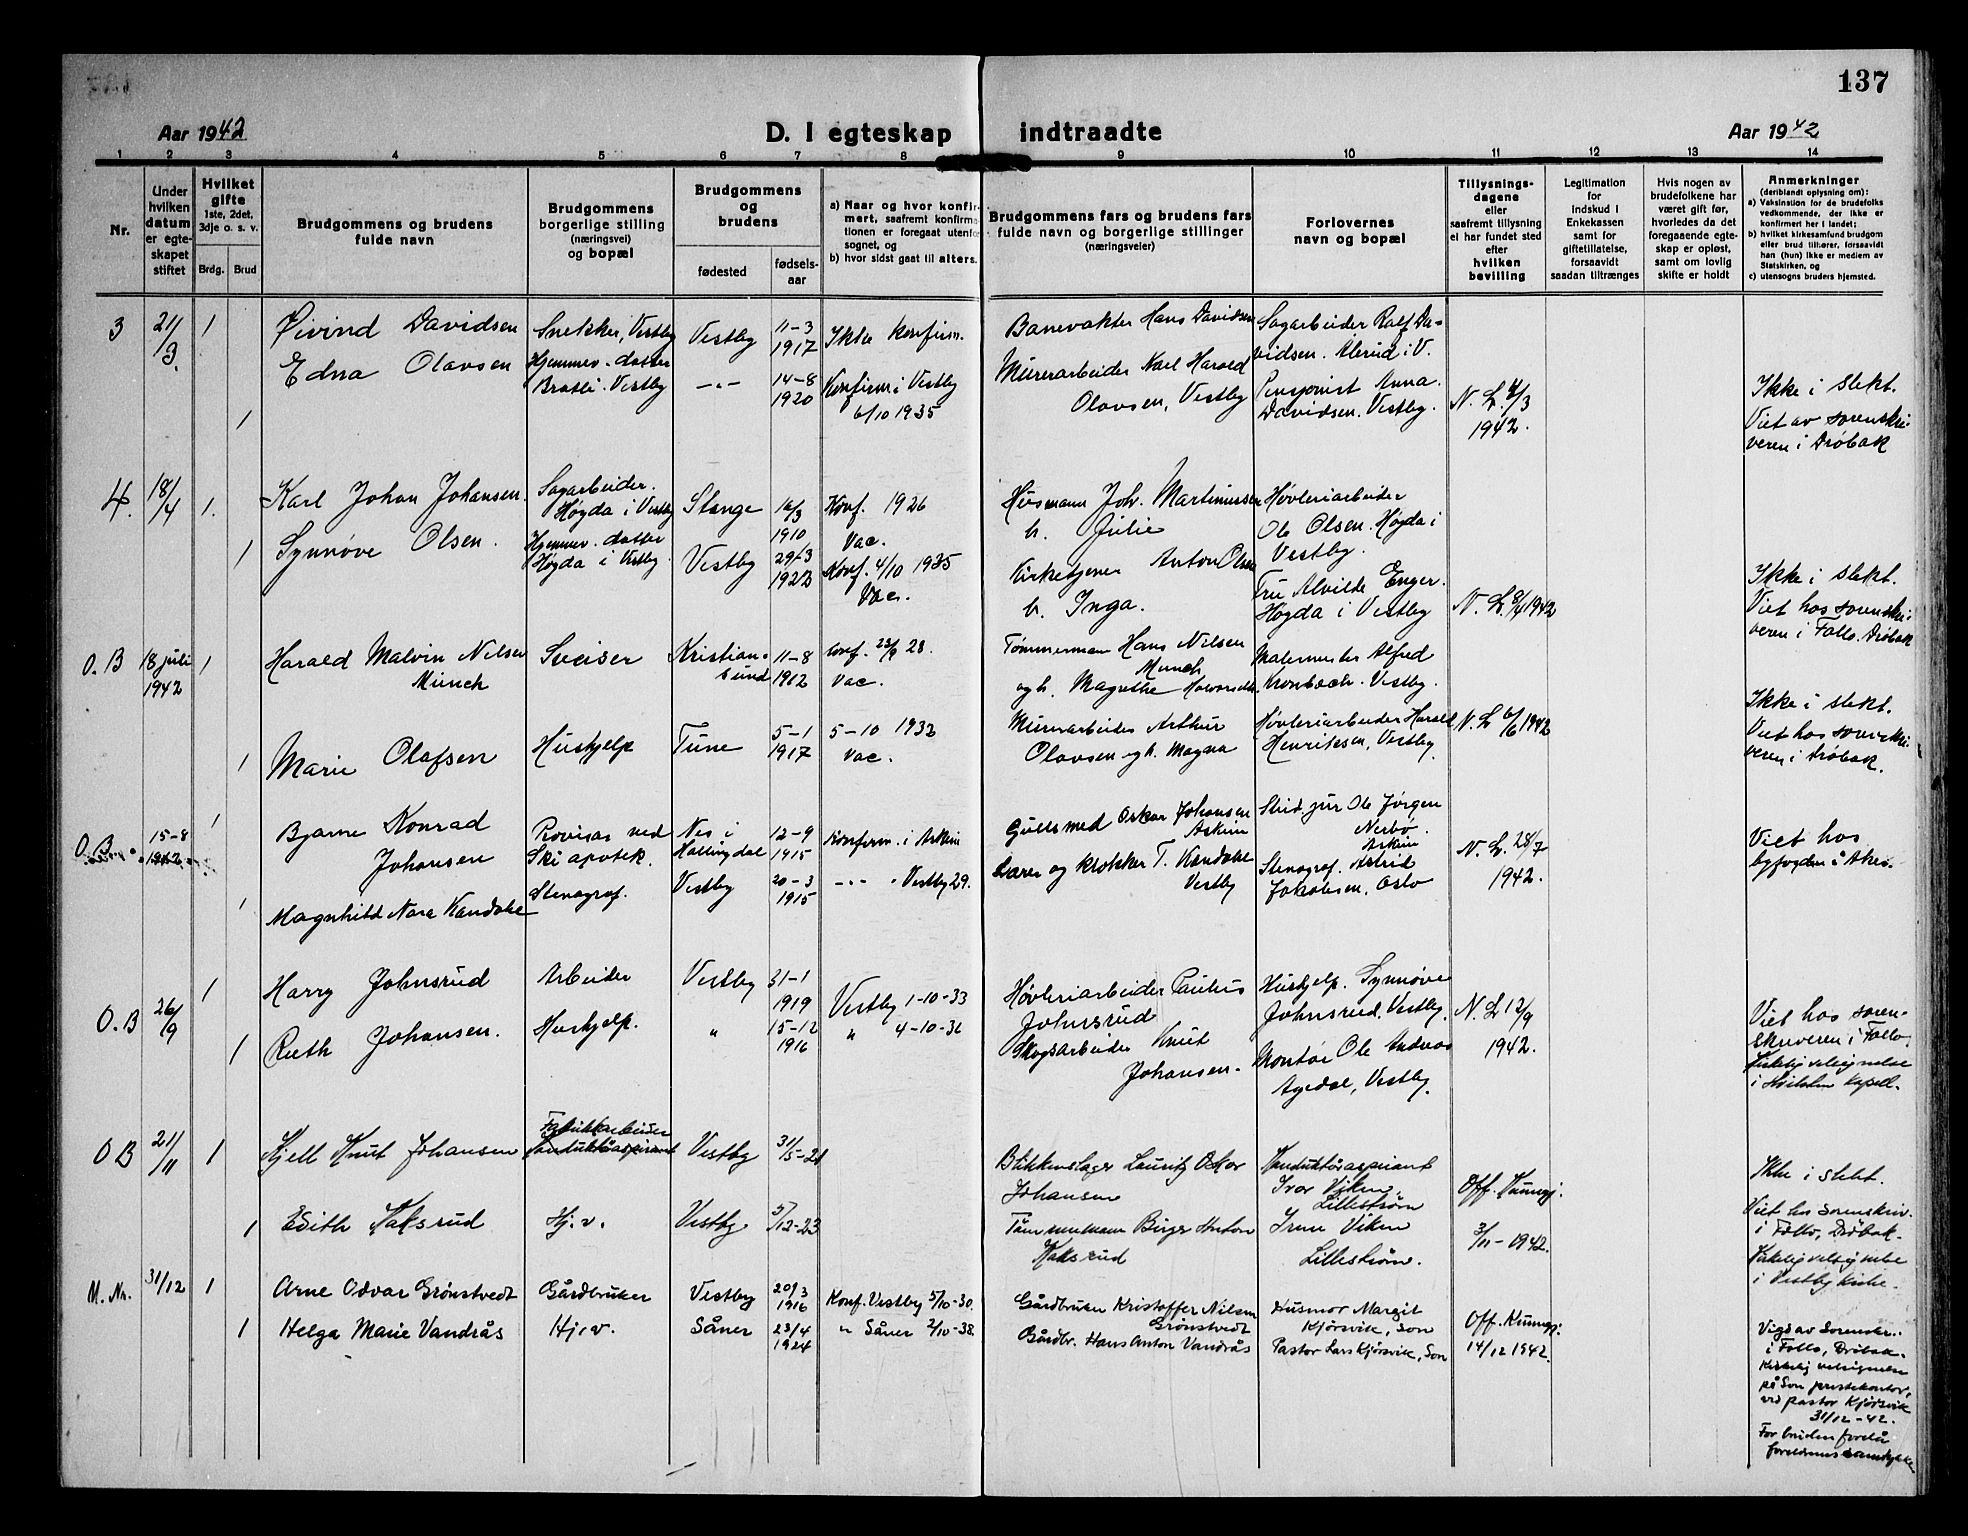 137
Aar 1942
D. I egteskap indtraadte
Aar 1942
1 2 3 4 5 6 7 8 9 10 11 12 13 14
Nr.
Under hvilken datum er egteskapet stiftet
Hvilket gifte
1ste, 2det, 3dje o. s. v.
Brdg. Brud
Brudgommens og brudens
fulde navn
Brudgommens
borgerlige stilling
(næringsvei)
og bopæl
Brudgommens
og
brudens
fødested
fødsels-
aar
a) Naar og hvor konfir-
mert, saafremt konfirma-
tionen er foregaat utenfor
sognet, og
b) hvor sidst gaat til alters.
Brudgommens fars og brudens fars
fulde navn og borgerlige stillinger
(næringsveier)
Forlovernes
navn og bopæl
Tillysnings-
dagene
eller
saafremt tillysning
ei har fundet sted
efter
hvilken
bevilling
Legitimation
for
Indskud i
Enkekassen
samt for
giftetillatelse,
forsaavidt
saadan tiltrænges
Hvis nogen av
brudefolkene har
været gift før,
hvorledes da det
foregaaende egte-
skap er opløst,
samt om lovlig
skifte er holdt
Anmerkninger
(deriblandt oplysning om):
a) Vaksination for de brudefolks
vedkommende, der ikke er
konfirmert her i landet;
b) hvilket kirkesamfund brudgom
eller brud tilhører, forsaavidt
han (hun) ikke er medlem av
Statskirken, og
c) utensogns bruders hjemsted.
3 21/3. 1
Øivind Davidsen
Snekker, Vestby
Vestby
11-3
1917
Ikke konfirm.
Banevakter Hans Davidsen
Sagarbeider Ralf Da-
vidsen. Ulerud i V.
1
Edna Olavsen
Hjemmev. datter
Bratli. Vestby
-"-
14-8
1920
Konfirm i Vestby
6/10 1935
Murerarbeider Karl Harald
Olavsen, Vestby
Pensjonist Anna
Davidsen. Vestby.
N. L. 4/3
1942.
Ikke i slekt.
Viet av sorenskri-
veren i Drøbak
4. 18/4 1.
Karl Johan Johansen.
Sagarbeider.
Høgda i Vestby
Stange
16/3
1910
Konf. 1926
Vac.
Husmann Joh. Martinussen
h. Julie
Høvleriarbeider
Ole Olsen. Høgda i
Vestby.
1
Synnøve Olsen.
Hjemmev. datter
Høgda i Vestby.
Vestby
29/3
Konf. 4/10 1935
Vac.
Kirketjener Anton Olsen
h. Inga.
Fru Alvilde Enger.
Høgda i Vestby
N. L. 8/4 1942
Ikke i slekt.
Viet hos sorenskri-
veren i Follo. Drøbak
O. B 18 juli
1942
1
Harald Malvin Nilsen
Munch
Sveiser
Kristian-
sund
11-8
1912
Konf. 23/9 28.
Vac.
Tømmermann Hans Nilsen
Munch
og h. Magrethe
Malermester Alfred
Kronbach. Vestby.
1
Marie Olafsen
Hushjelp
Tune
5-1
1917
5-10 1932
Vac.
Murerarbeider Arthur
Olavsen og h. Magna
Høvleriarbeider Harald
Henriksen, Vestby.
N. L 6/6 1942
Ikke i slekt.
Viet hos sorenskri-
veren i Drøbak.
O. B. 15-8
1942
1
Bjarne Konrad
Johansen
Provisor ved
Ski apotek.
Nes i
Hallingdal
12-9
1915
Konferm. i Askim
Gullsmed Oskar Johansen
Askim
Stud. jur Ole Jørgen
Nerbø.
Askim
1
Magnhild Nora Kandahl
Stenograf.
Vestby
20-3
1915
-"- " Vestby 29.
Lærer og klokker T. Kandahl
Vestby
Stenograf. Astrid
Jakobsen, Oslo
N. L. 28/7
1942.
Viet hos
byfogden i Aker.
O. B 26/9 1
Harry Johnsrud
Arbeider
Vestby
31-1
1919
Vestby 1-10-33
Høvleriarbeider Paulus
Johnsrud
Hushjelp. Synnøve
Johnsrud, Vestby.
1
Ruth Johansen.
Hushjelp.
"
15-12
1916
" 4-10-31
Skogsarbeider Knut
Johansen.
Montør Ole Andreas
Agedal, Vestby.
N. L 12/9
1942.
Viet hos soren-
skriveren i Follo.
Kirkelig velsignelse
i Hvitsten kapell.
O B 21/11 1
Kjell Knut Johansen
Fabrikkarbeider
Konduktøraspirant
Vestby
31/5-21
Blikkenslager Lauritz Oskar
Johansen
Konduktøraspirant
Ivar Viken,
Lillestrøm
1
Edith Haksrud
Hj. v.
Vestby
5/12-23
Tømmermann Birger Anton
Haksrud
Irene Viken
Lillestrøm.
Off. Kunngj.
3/11-1942.
Ikke i slekt.
Viet hos sorenskriv.
i Follo, Drøbak.
Kirkelig velsignelse
i Vestby kirke.
M. Nr. 31/12 1
Arne Odvar Grønstvedt
Gårdbruker
Vestby
20/3
1916
Konf. Vestby 5/10-30.
Gårdbruker Kristoffer Nilsen
Grønstvedt
Husmor Margit
Kjørsvik, Son
1
Helga Marie Vandrås
Hj.v.
Såner
23/4
1924
" Såner 2/10-38.
Gårdbr. Hans Anton Vandrås
Pastor Lars Kjørsvik, Son
Off. Kunngj.
14/12 1942.
Vigd av Sorenskr.
i Follo, Drøbak.
Kirkelig velsignelse
på Son prestekontor,
ved pastor Kjørsvik
31/12-42.
For bruden forelå
foreldrenes samtykke